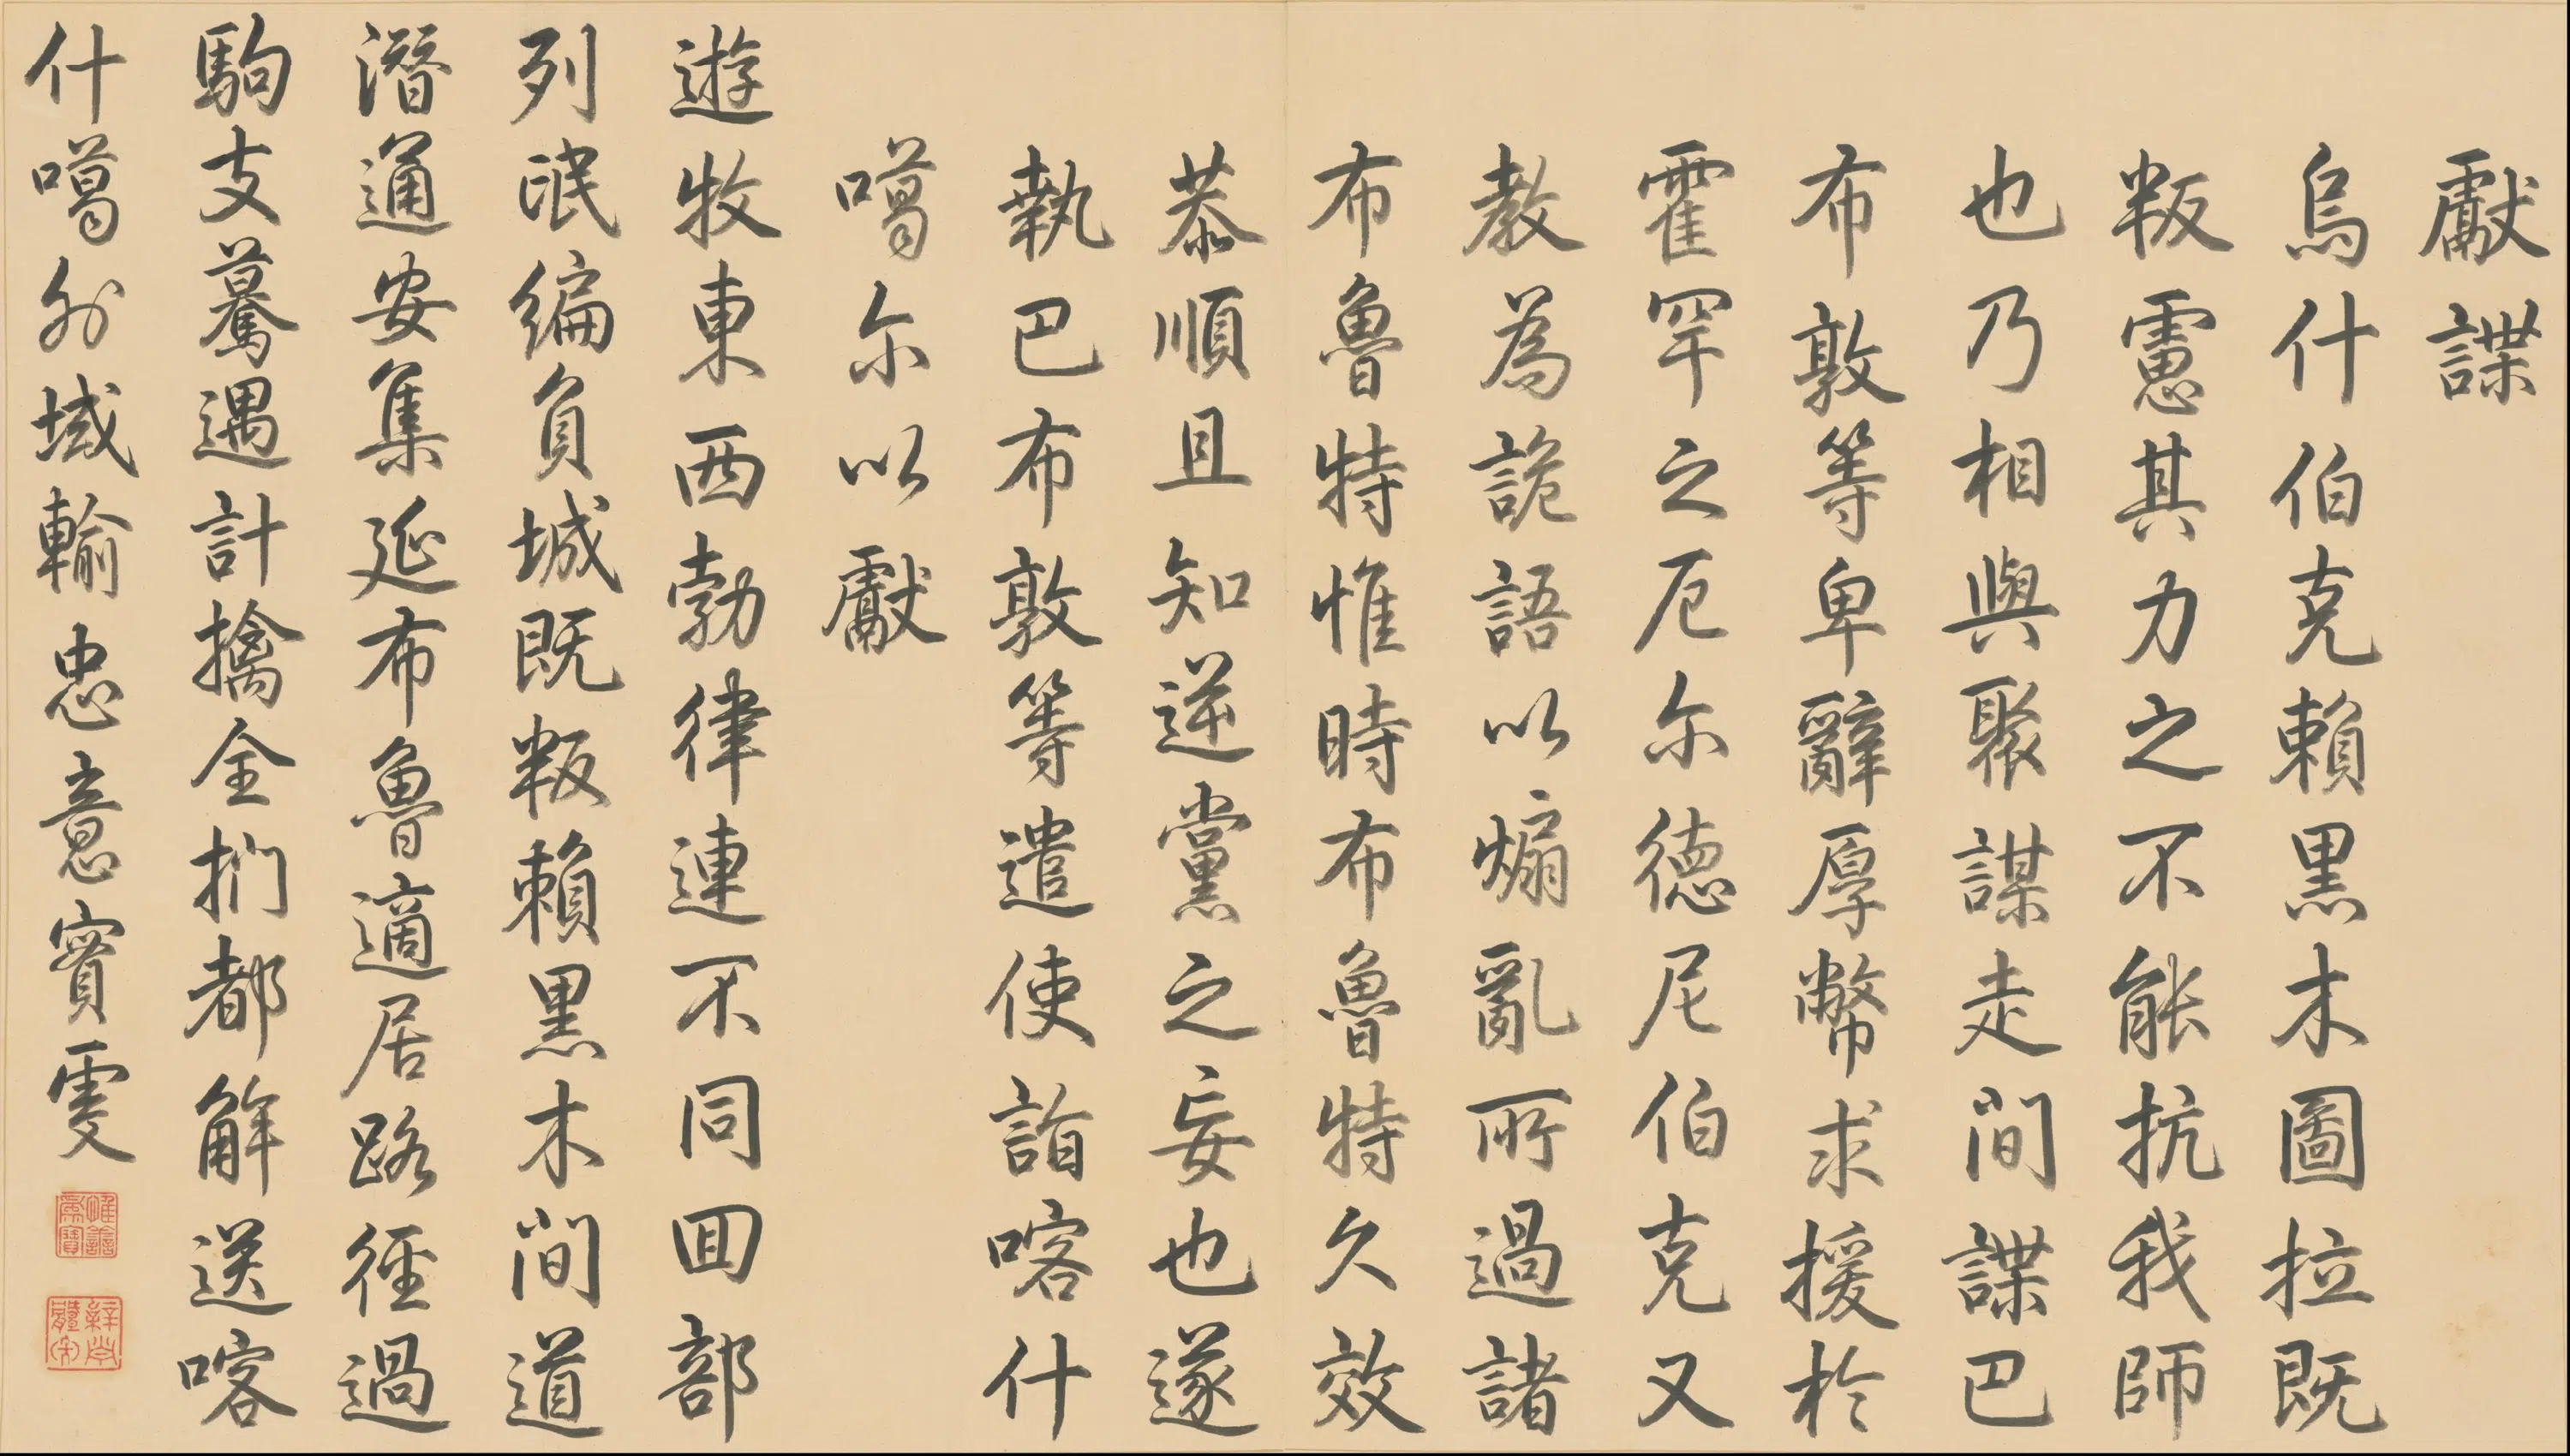 獻諜
烏什伯克賴黑木圖拉既
叛慮其力之不能抗我師
也乃相與聚謀走間諜巴
布敦等卑辭厚幣求援於
霍罕之厄尔德尼伯克又
教為詭語以煽亂所過諸
布魯特惟時布魯特久效
恭順且知逆黨之妄也遂
執巴布敦等遣使詣喀什
噶尔以獻
遊牧東西勃律連不同回部
列氓編負城既叛賴黑木間道
潛通安集延布魯適居路徑過
駒支驀遇計擒全捫都解送喀
什噶外域輸忠意實雯